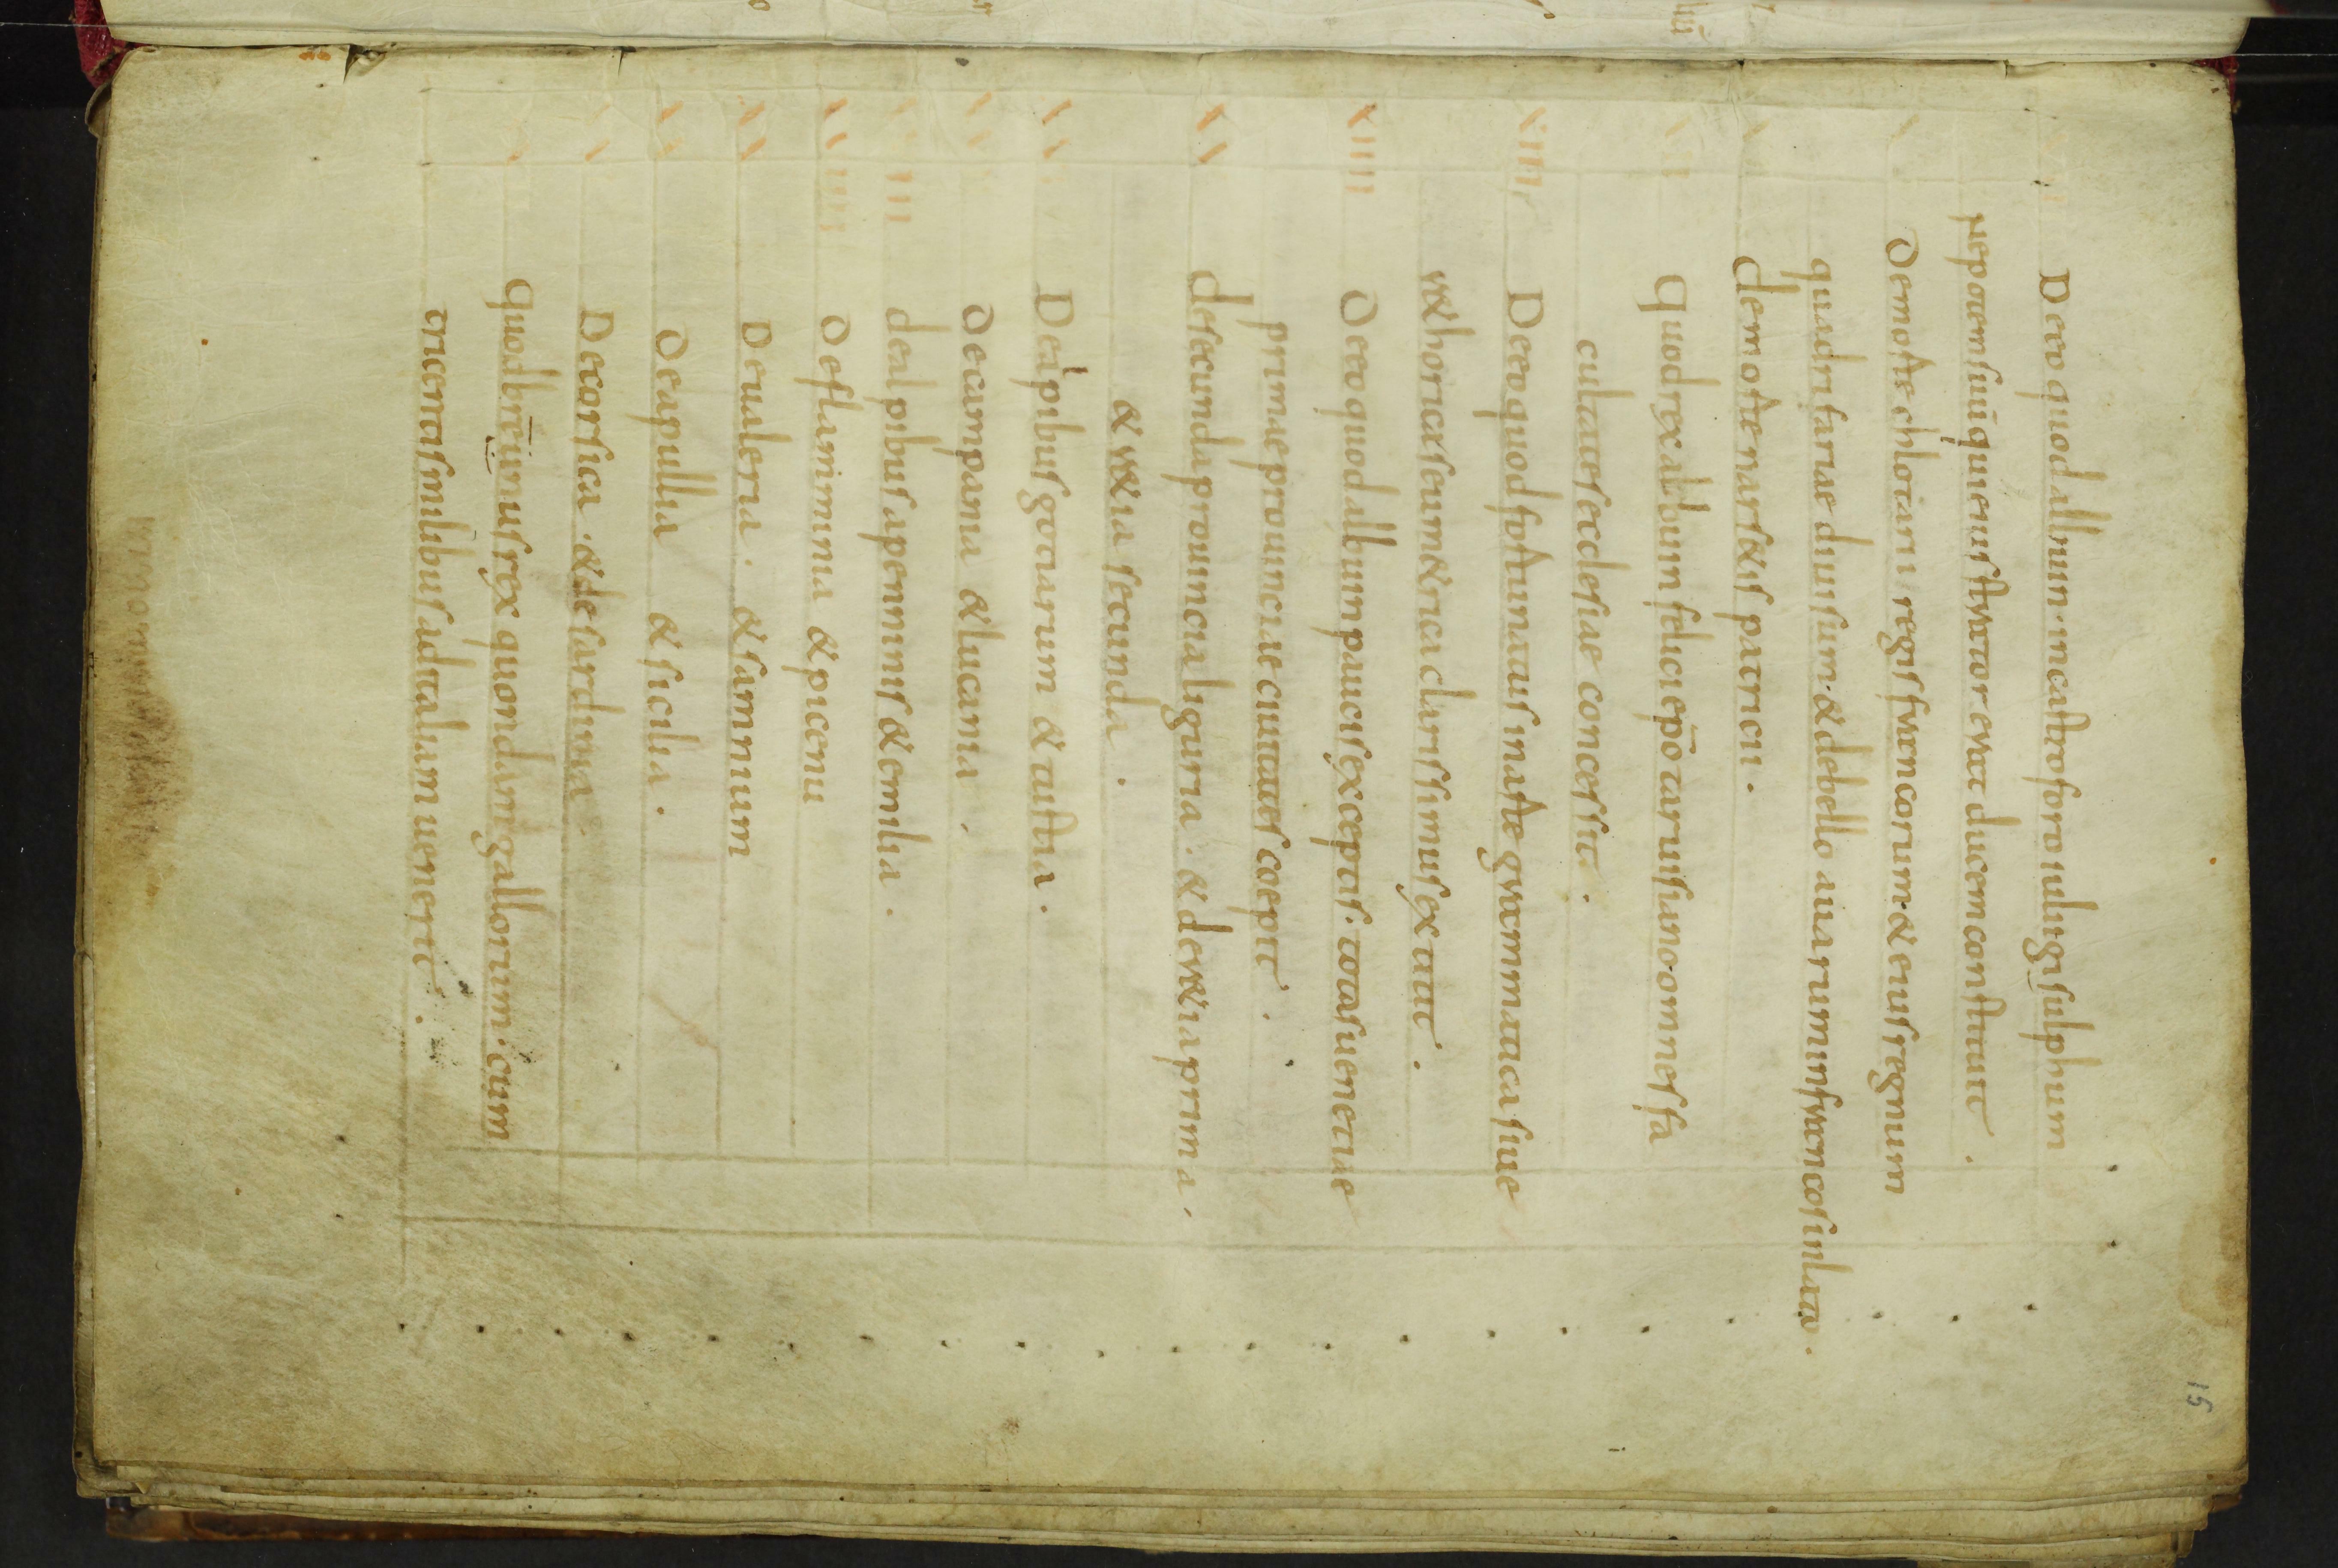 De eo quod alboin. in castro foroiulii gisulphum
nepotem suū qui eius strator erat ducem constituit.
De morte chlotarii regis francorum. & eius regnum
quadrifariae diuisum. & de bello auarum in francos inlato.
de morte narsetis patricii.
Quod rex alboin felici epō taruisiano omnes fa
cultates ecclesiae concessit.
De eo quod fortunatus in arte grammatica siue
rethorica seu metrica clarissimus extitit.
De eo quod alboin paucis exceptis. totas uenetiae
primae prouinciae ciuitates coepit.
de secunda prouincia liguria. & de retia prima.
& retia secunda.
De alpibus gotiarum & tustia.
De campania & lucania.
de alpibus apenninis & emilia.
De flaminia & piceni
De ualeria. & samnium
De apullia & sicilia.
De corsica. & de sardinia
Quod brennus rex quondam gallorum. cum
tricentas milibus ad italiam uenerit.
15